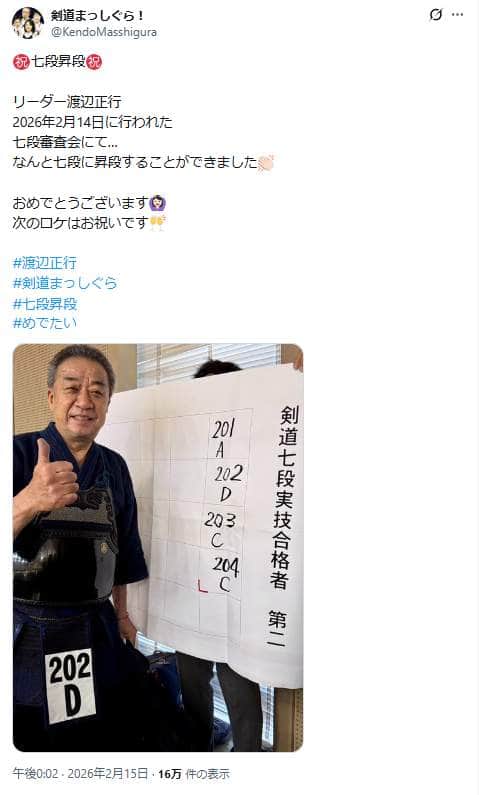 剣道まっしぐら！
@KendoMasshigura
㊗七段昇段㊗
リーダー渡辺正行
2026年2月14日に行われた
七段審査会にて...
なんと七段に昇段することができました👏🏻
おめでとうございます🙆🏻‍♀️
次のロケはお祝いです🥂
#渡辺正行
#剣道まっしぐら
#七段昇段
#めでたい
剣道七段実技合格者 第二
201
A
202
D
203
C
204
C
202
D
午後0:02 · 2026年2月15日 · 16万 件の表示